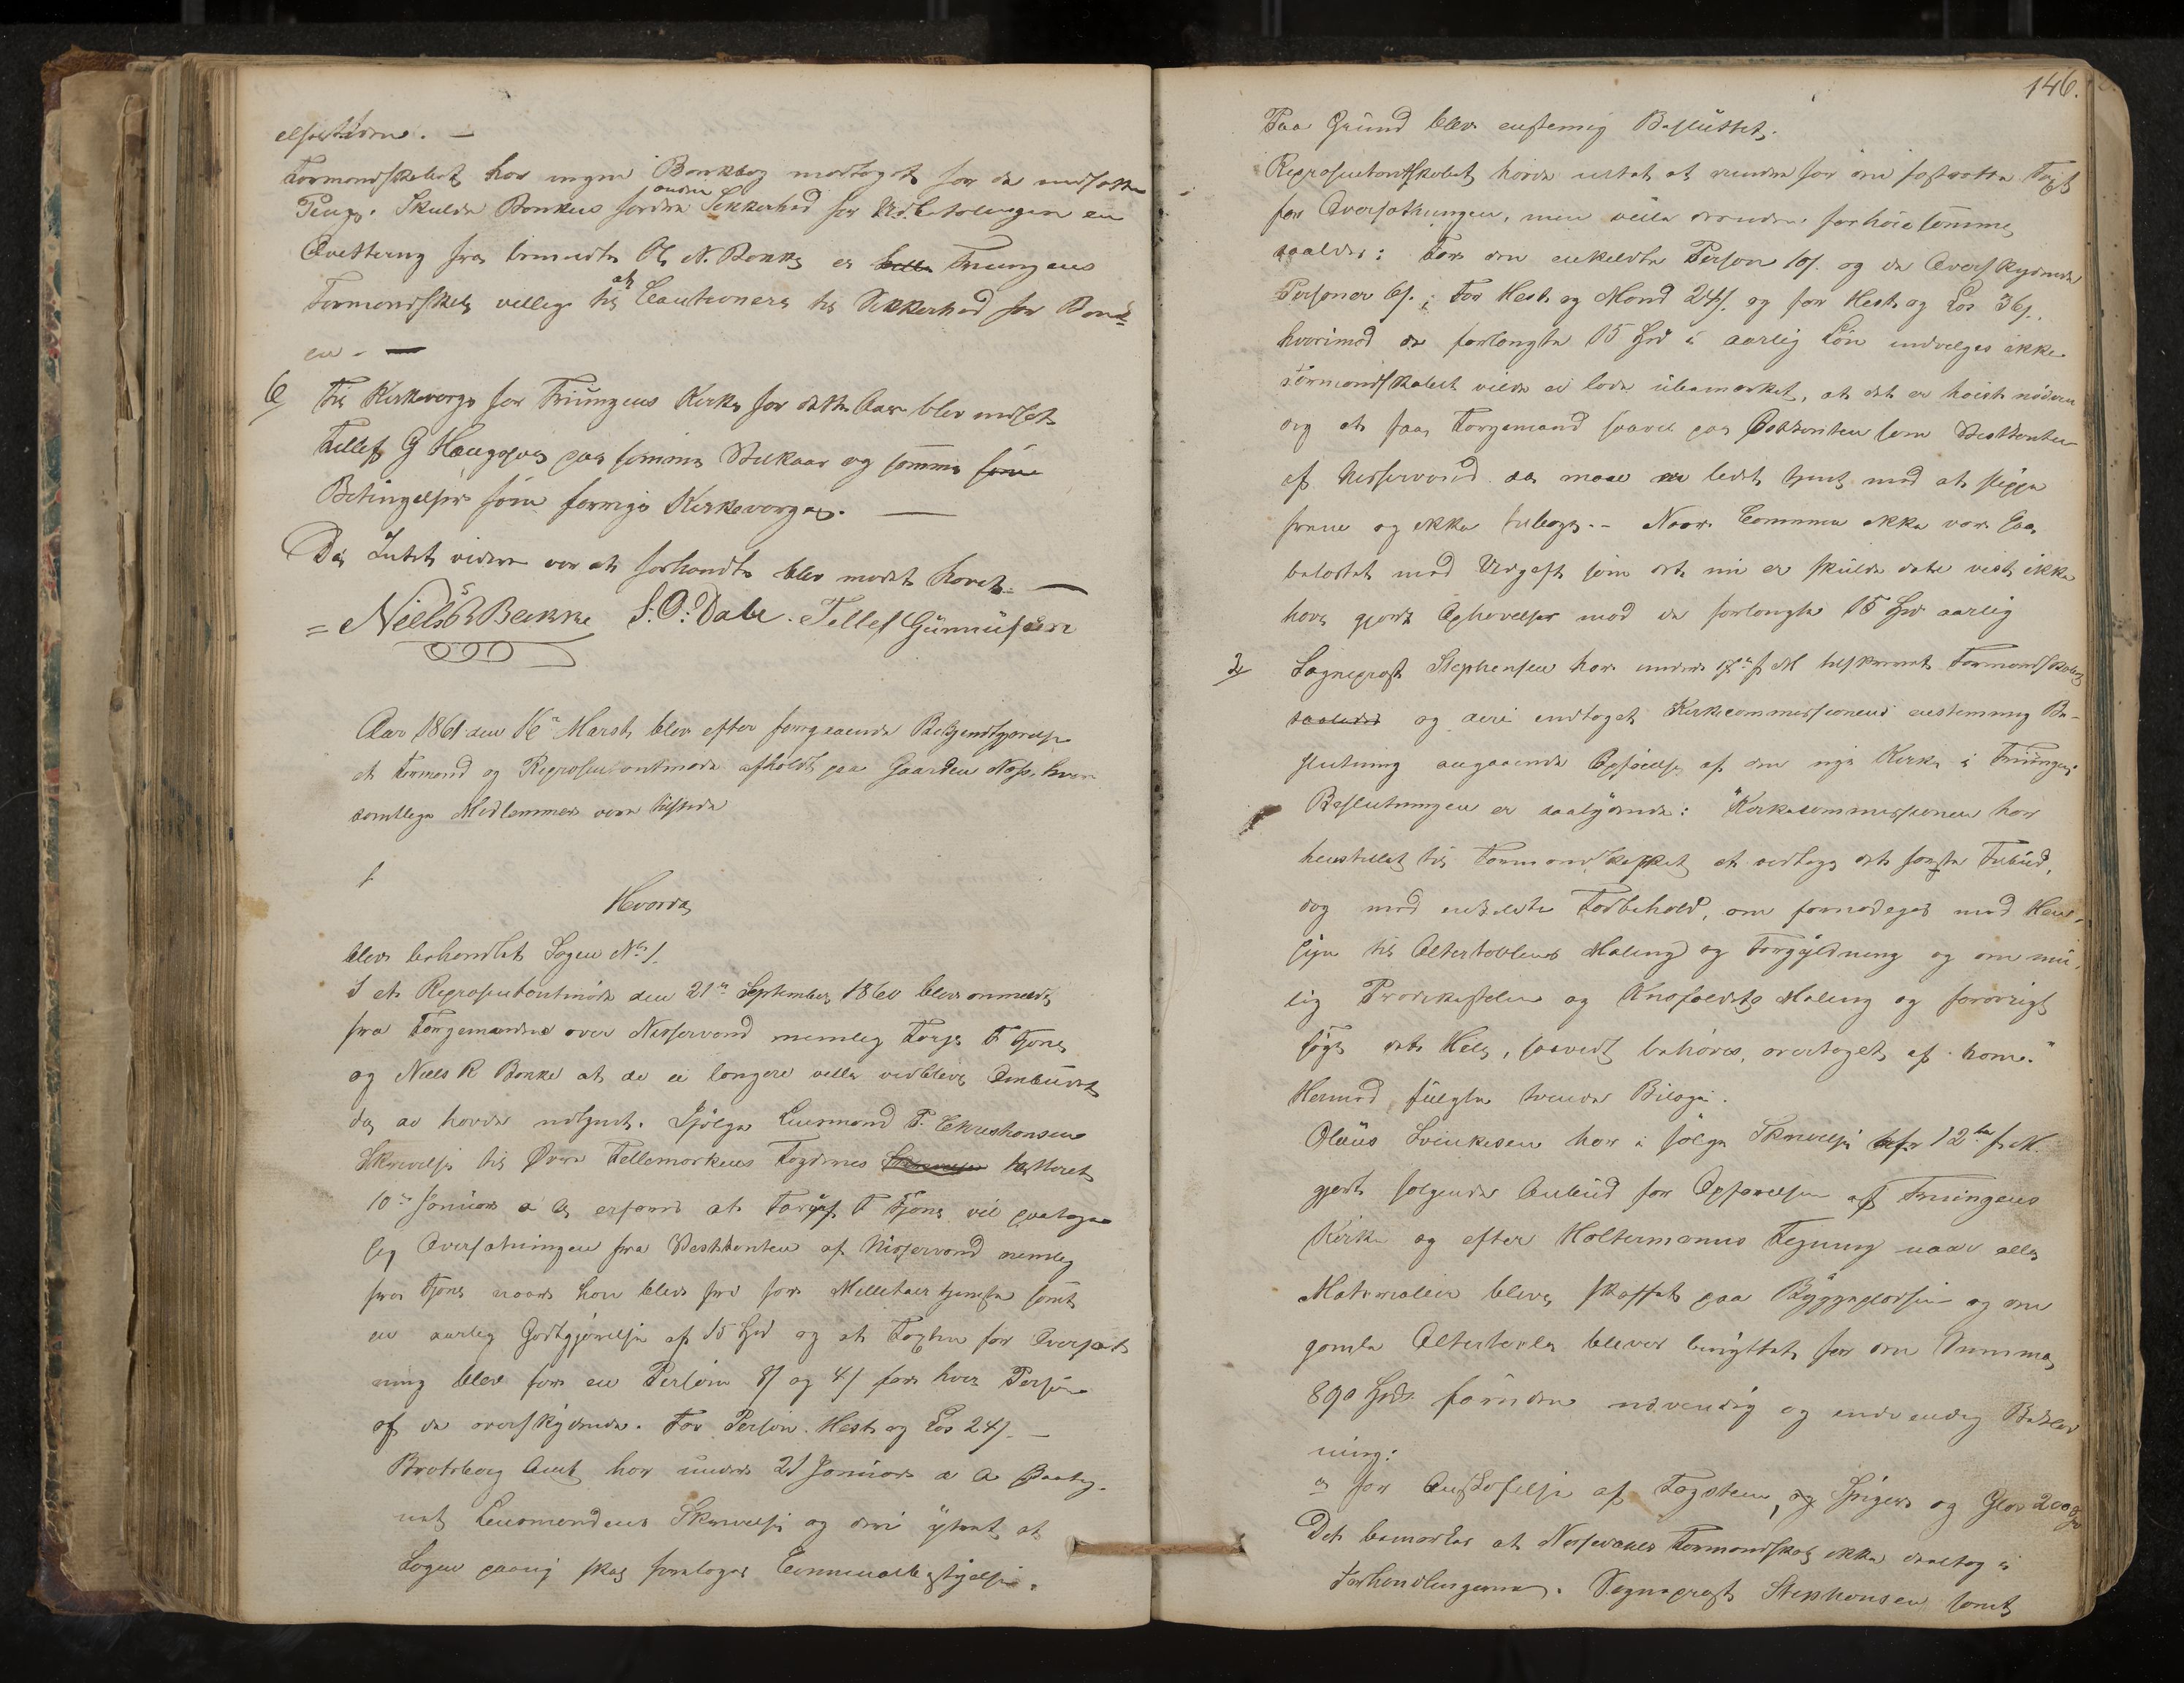 elsestiden. —
Formandskabet har ingen Bankbog modtaget for de indsatte
Penge. Skulde Banken fordre anden Sikkerhed for Udbetalingen en
Qvittering fra bemeldte N. Bakke er Truungens
Formandskab villig til at Cautionere til Sikkerhed for Bank-
en. —
6/ Til Kirkeværge for Truungens Kirke for dette Aar blev indsat
Tellef G Haugsjaa paa samme Vilkaar og samme som
Betingelser som forrige Kirkeværge. —
Da Intet videre var at forhandle blev mødet hævet. —
Niels Bakke S. O. Dale. Tellef Gunnufsen
Aar 1861 den 16de Marts blev efter foregaaende Bekjendtgjørelse
et Formand og Repræsentantmøde afholdt paa Gaarden Næss, hvor
samtlige Medlemmer vare tilstede
1
Hvorda
blev behandlet Sagen No 1.
I et Repræsentantmøde den 21de September 1860 blev anmeldt
fra Færgemændene over Nisservand nemlig Torje T Tjøns
og Niels R Bakke at de ei længere ville vedblive Ombudet
da de havde udtjent. Ifølge Lensmand P. Christensens
Skrivelse til Øvre Tellemarkens Fogderie dateret
10de Januar a A erfares at T Tjøns vil paatage
sig Oversætningen fra Vestkanten af Nisservand nemlig
fra Tjøns naar han blev fri for Millitair tjeneste samt
en aarlig Godtgjørelse af 15 Spd og at Taxten for Oversæt-
ning blev for en Person 8/ og 4/ for hver Person
af de overskydende. For Person. Hest og Læs 24/. —
Bratsberg Amt har under 21 Januar a A Paateg-
net Lensmandens Skrivelse og deri yttret at
Sagen paany skal forelægges Communebestyrelsen.
146.
Paa Grund blev enstemig Besluttet.
Repræsentantskabet havde intet at erindre for den fastsatte Taxt
for Oversætningen, men ville den forhøie samme
saaledes: For den enkelte Person 10/. og de Overskydende
Personer 6/.; For Hest og Mand 24/. og for Hest og Læs 36/.
hvorimod de forlangte 15 Spd i aarlig Løn indvilges ikke
Formandskabet vilde ei lade ubemærket, at det er høist nødven-
dig at faa Færgemand saavel paa Østkanten som Vestkanten
af Nisservand da man er lidet tjent med at slippe
frem og ikke tilbage. — Naar Communen ikke var saa
belastet med Udgift som det nu er skulde dette vist ikke
have gjort Ophævelser mod de forlangte 15 Spd aarlig
2/ Sogneprest Stephensen har under f M tilskrevet Formandskabet
og deri indtaget Kirkecommissionens enstemmig Be-
slutning angaaende Opførelse af den nye Kirke i Truungen.
Beslutningen er saalydende: "Kirkecommissionen har
henstillet til Formandskabet at vedtage det første Tilbud,
dog med enkelte Forbehold, om fornødiges med Hen-
syn til Altertavlens Maling og Forgyldning og om mu-
lig Prædikestolen og Knæfaldets Maling og forøvrigt
søge det Hele, saavidt behøves, overtaget af ham."
Hermed fulgte trende Bilage.
Oläus Svinkesen har i følge Skrivelse af 12te f. M.
gjort følgende Anbud for Opførelsen af Truungens
Kirke og efter Holtermanns Tegning naar alle
Materialier bleve skaffet paa Byggepladsen og den
gamle Altertavle bliver benyttet for den Summa
890 Spd. foruden udvendig og indvendig Beklæd-
ning:
a for Anskaffelse af Tagsteen, og Spiger og Glas 200 Spd
Det bemærkes at Nissedals Formandskab ikke deeltog i
Forhandlingerne. Sogneprest Stephensen samt